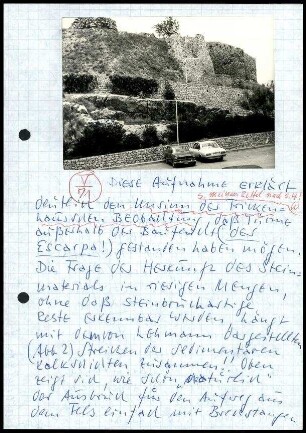 V/71
Diese Aufnahme erklärt
deutlich den Unsinn der
Beobachtung, daß Türme
außerhalb der Bauflucht (der
Escarpa!) gestanden haben mögen.
Die Frage der Herkunft des Stein-
materials in riesigen Mengen,
ohne daß steinbruchartige
Reste erkennbar werden hängt
mit dem von Lehmann dargestellten
(Abb 2) Streichen der sedimentären
Kalkschichten zusammen!! Oben
zeigt sich, wie schön "natürlich"
der Ausbruch für den Aufweg aus
dem Fels einfach mit Brechstangen